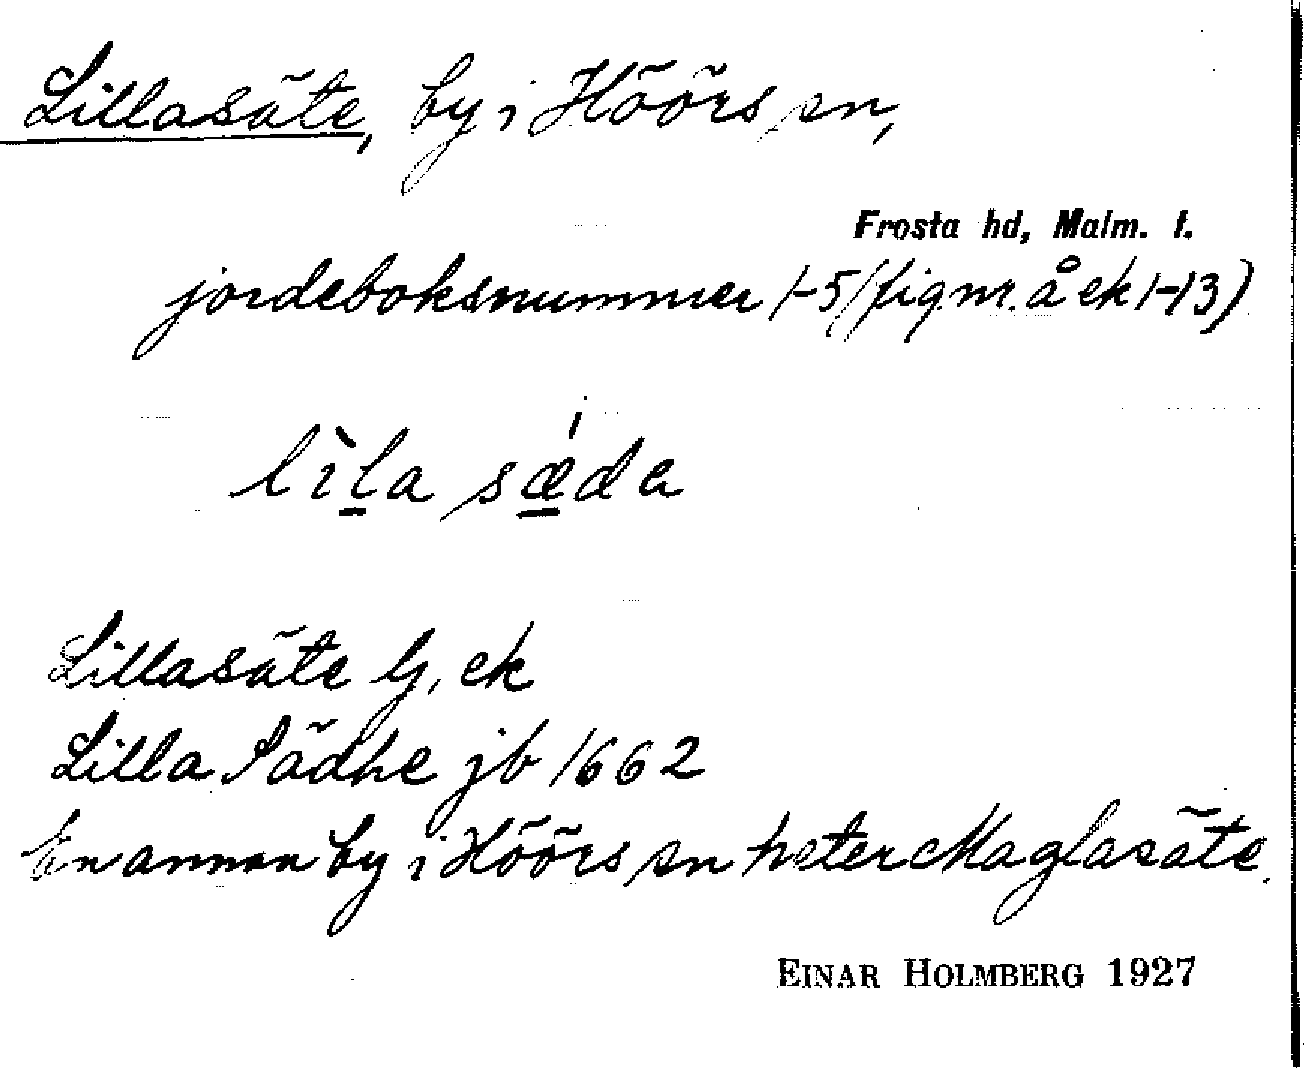 Lillasäte, by i Höörs sn,
Frosta hd, Malm. l.
jordeboksnummer 1-5 (fig nr. å ek 1-13)
lìla sǽda
Lillasäte Gj, ek
Lilla Sädhe jb 1662
En annan by i Höörs sn heter Maglasäte.
EINAR HOLMBERG 1927